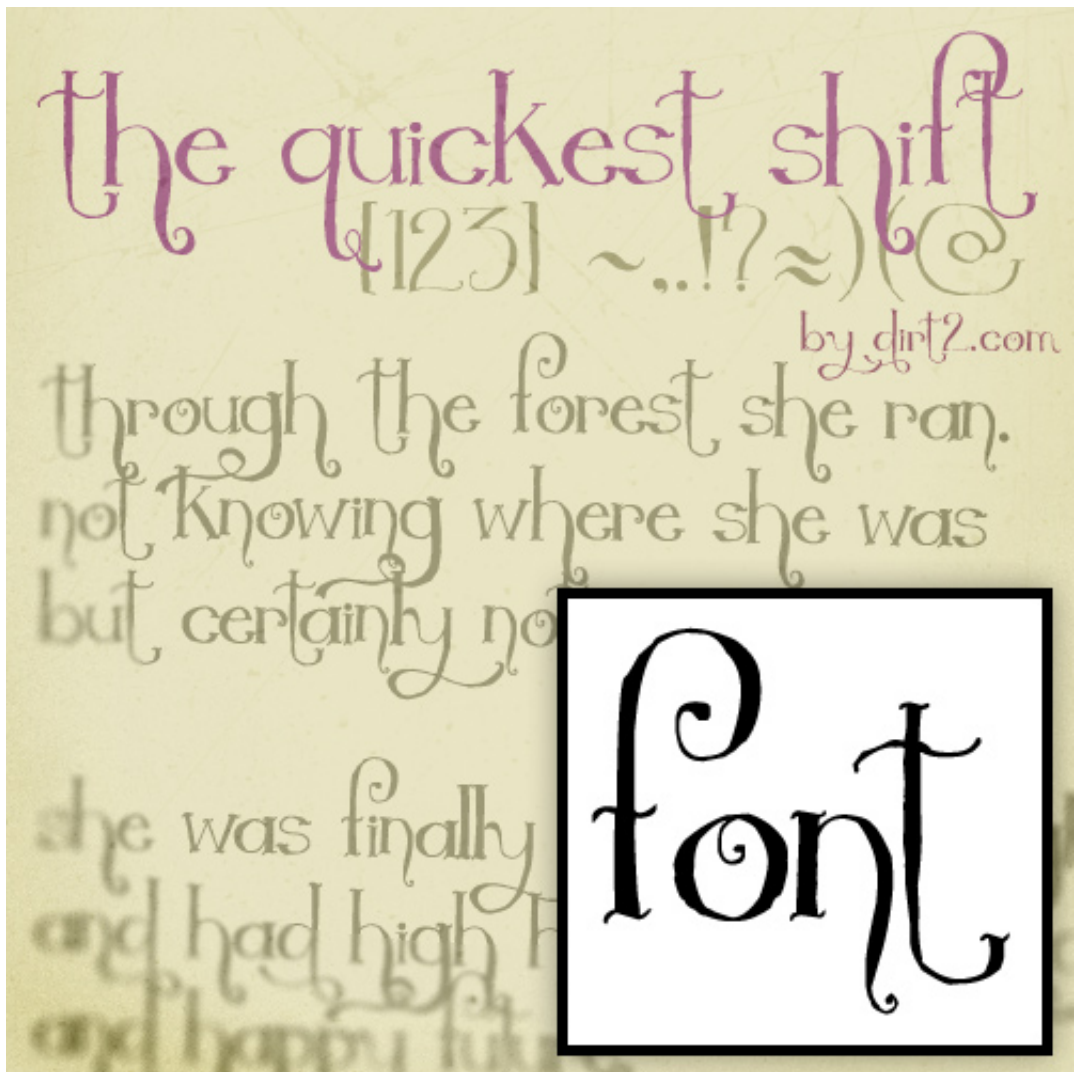 the quickest shift
[123] ~,.!?≈)(@
by dirt2.com
through the forest she ran.
not knowing where she was
but certainly no
she was finally
and had high h
and happy future
font